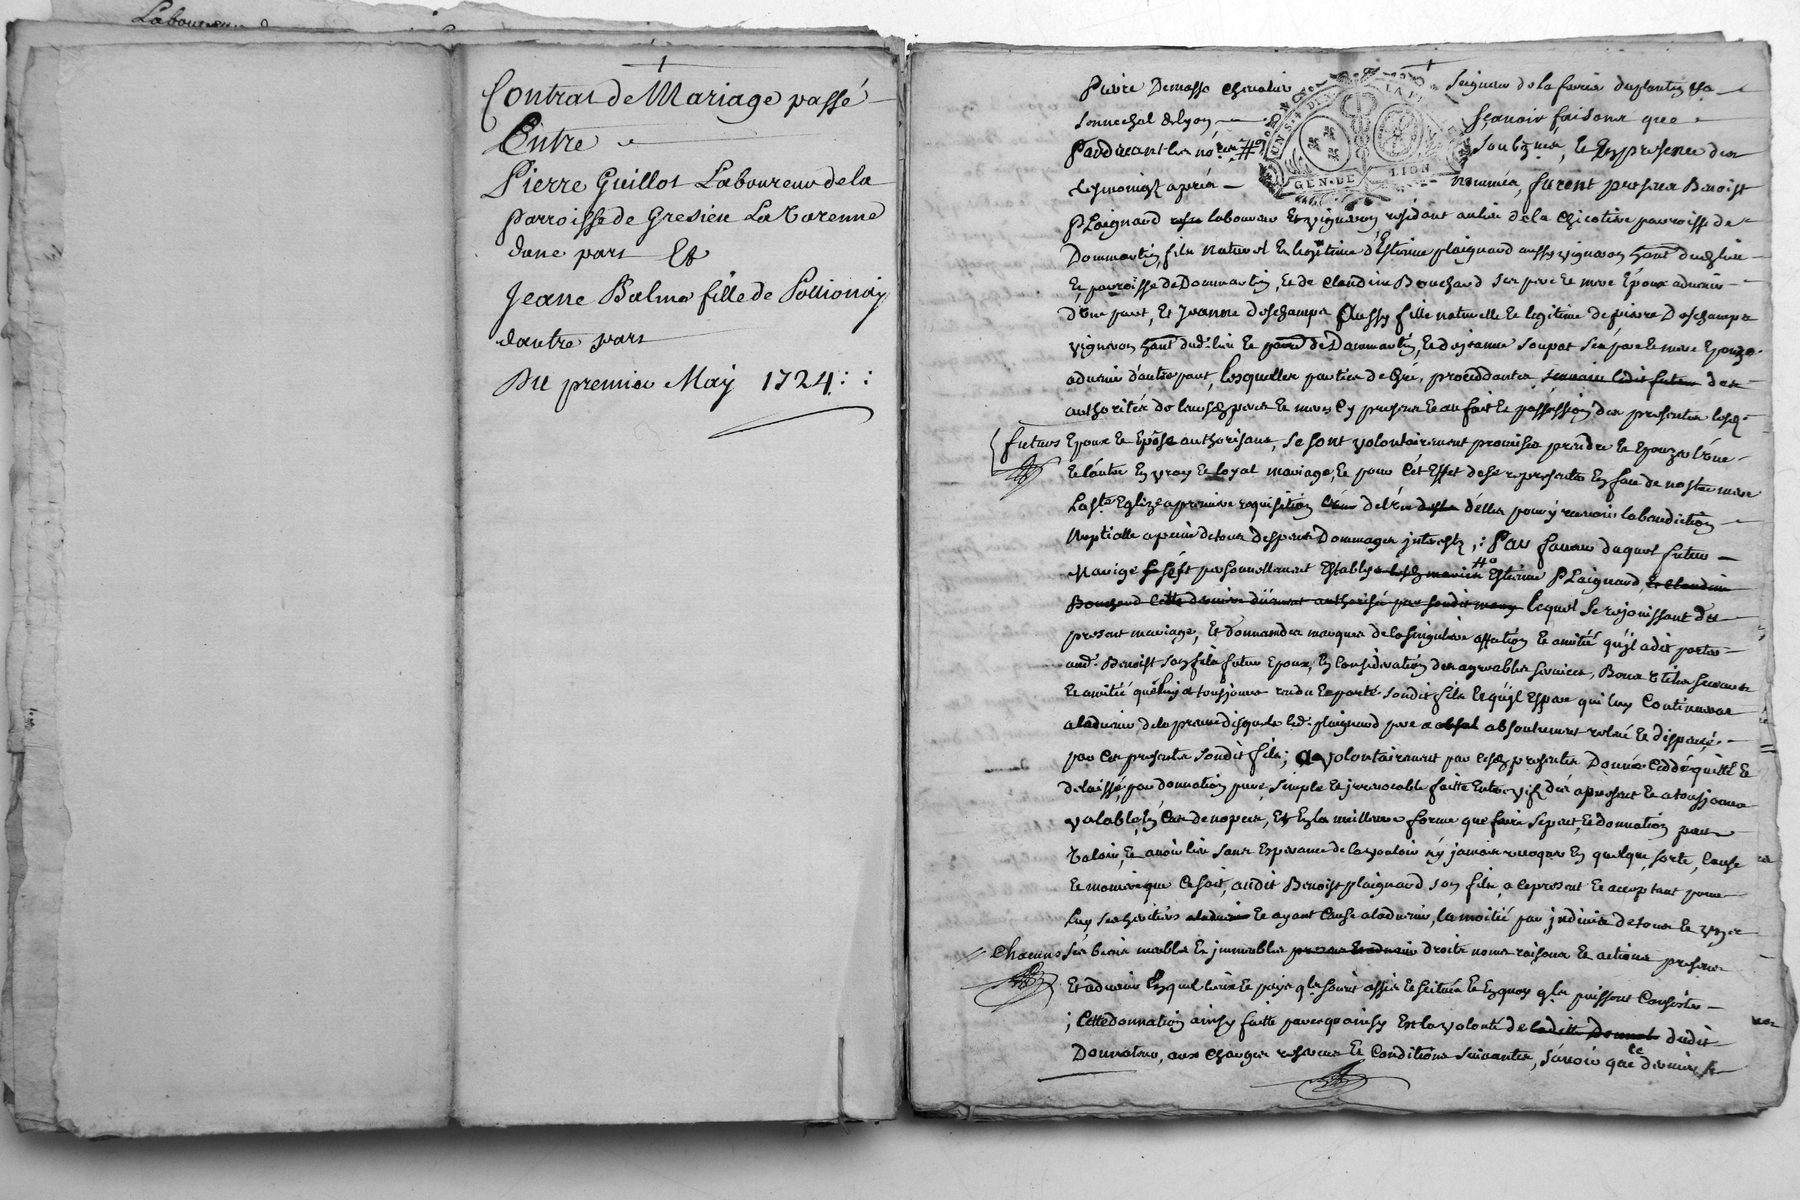 Laboureur
Contrat de Mariage passé
Entre
Pierre Guillot Laboureur de la
parroisse de Gresieu La Varenne
dune part Et
Jeane Balmo fille de Pollionay
dautre part
Du premier May 1724 : :
Pierre Demasso chevalier Seigneur de la ferrie duplantin
Sennechal de Lyon sçavoir faisons que
Pardevant les nores soubznés, et En presence des
tesmoingz aprés nommés, furent presens Benoist
GEN. DE LION
PLaignard laboureur Et vigneron residant au lieu de la Chicotiere parroisse de
Dommartin, fils naturel Et legitime d'Estienne plaignard aussy vigneron hant dud. lieu
Et parroisse de Dommartin, Et de Claudine Bouchard ses pere Et mere Epoux advenir
d'une part, Et Jeanne deschamps Aussy fille naturelle Et legitime de pierre Deschamps
vigneron hant dud. lieu Et parre de Dommartin, Et de Ses pere Et mere Epouze
advenir d'autre part, Lesquelles parties de Gré, proceddantes Sçavoir Ledit futur des
authorités de leursdz peres Et meres Cy presens Et au fait Et possession des presentes lesdz
futurs Epoux Et Epõse authorisans, Se sont volontairement promises prendre Et Epouzer l'une
Et l'autre En vray Et loyal mariage, Et pour Cet Effet de se representer En face de nostre mere
La Ste Eglize a premiere requisition de l'un d'elles pour y recevoir la benediction
Nuptialle a peine de tous despens Dommages jnterestz ; : Par faveur duquel futur
Mariage S'est personnellement Estably Estienne PLaignard, Et Claudine
Bouchard Cette derniere dûement authorisée par sondit mary lequel Se rejouissant du
present mariage, Et donnant des marques de la singuliere affection Et amitié qu'jl a dit porter
aud. Benoist son fils futur Epoux, En Consideration des agreables services, Bons
Et amitié que luy a tousjours rendu Et porté sondit fils Et qu'jl Espere qui luy Continuera
a ladvenir, de la preuve disquels led. plaignard pere a absolument relevé Et dispensé
par Ces presentes sondit fils ; a volontairement par cesdz presentes Donné Ceddé quitté Et
delaissé, par donnation pure, Simple Et jrrevocable faitte Entrevifz dés apresent Et a tousjours
valable En Cas de nopces, Et En la meilleure forme que faire se peut, Et donnation peut
Valoir, Et avoir lieu sans Esperance de la vouloir n'y jamais revoquer En quelque sorte, Cause
Et moniere que Ce soit, audit Benoist plaignard son fils, a Ce present Et acceptant pour
Luy Ses heritiers Et ayant Cause a ladvenir, la moitié par jndivis de tous Et
Chacuns Ses biens meubles Et jmmeubles droits noms raisons Et actions presens
Et advenir En quel lieu Et pays qls soient assis Et scitués Et En quoy qls puissent Consister
; Cette donnation ainsy faitte parcequ'ainsy Est la volonté de laditte dudit
Donnateur, aux charges reserves Et Conditions suivantes, Sçavoir que ce dernier